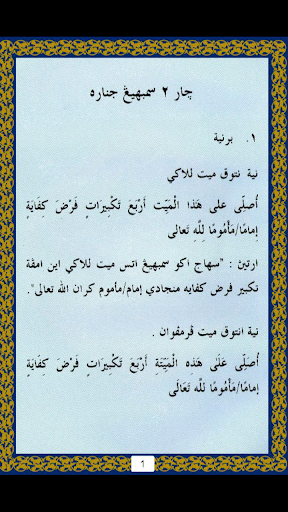 چارا ٢ سمبهيڠ جنازه
١. برنية
نية نتوق ميت للاكي
أُصَلِّى عَلَى هَذَا الْمَيِّت أَرْبَعَ تَكْبِيرَاتٍ فَرْضَ كِفَايَةٍ
إِمَامًا/مَأْمُومًا لِلَّهِ تَعالى
ارتيڽ : "سهاج اكو سمبهيڠ اتس ميت للاكي اين امڤة
تكبير فرض كفايه منجادي إمام/مأموم كران الله تعالى".
نية انتوق ميت ڤرمڤوان .
أُصَلِّى عَلَى هَذِهِ الْمَيِّتَةِ أَرْبَعَ تَكْبِيرَاتٍ فَرْضَ كِفَايَةٍ
إِمَامًا/مَأْمُومًا للَّه تَعَالَى
1